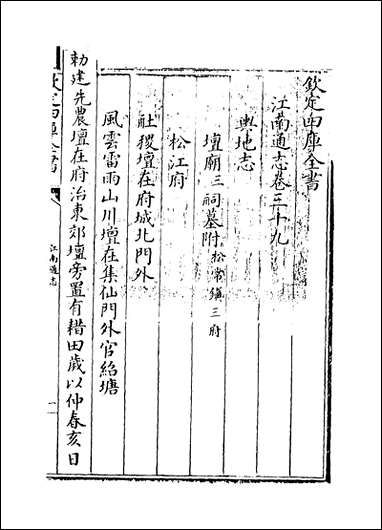 欽定四庫全書
江南通志卷三十九
輿地志
壇廟三祠墓附松常鎮三府
松江府
社稷壇在府城北門外
風雲雷雨山川壇在集仙門外官紹塘
勅建先農壇在府治東郊壇旁置有耤田歲以仲春亥日
欽定四庫全書
江南通志
一